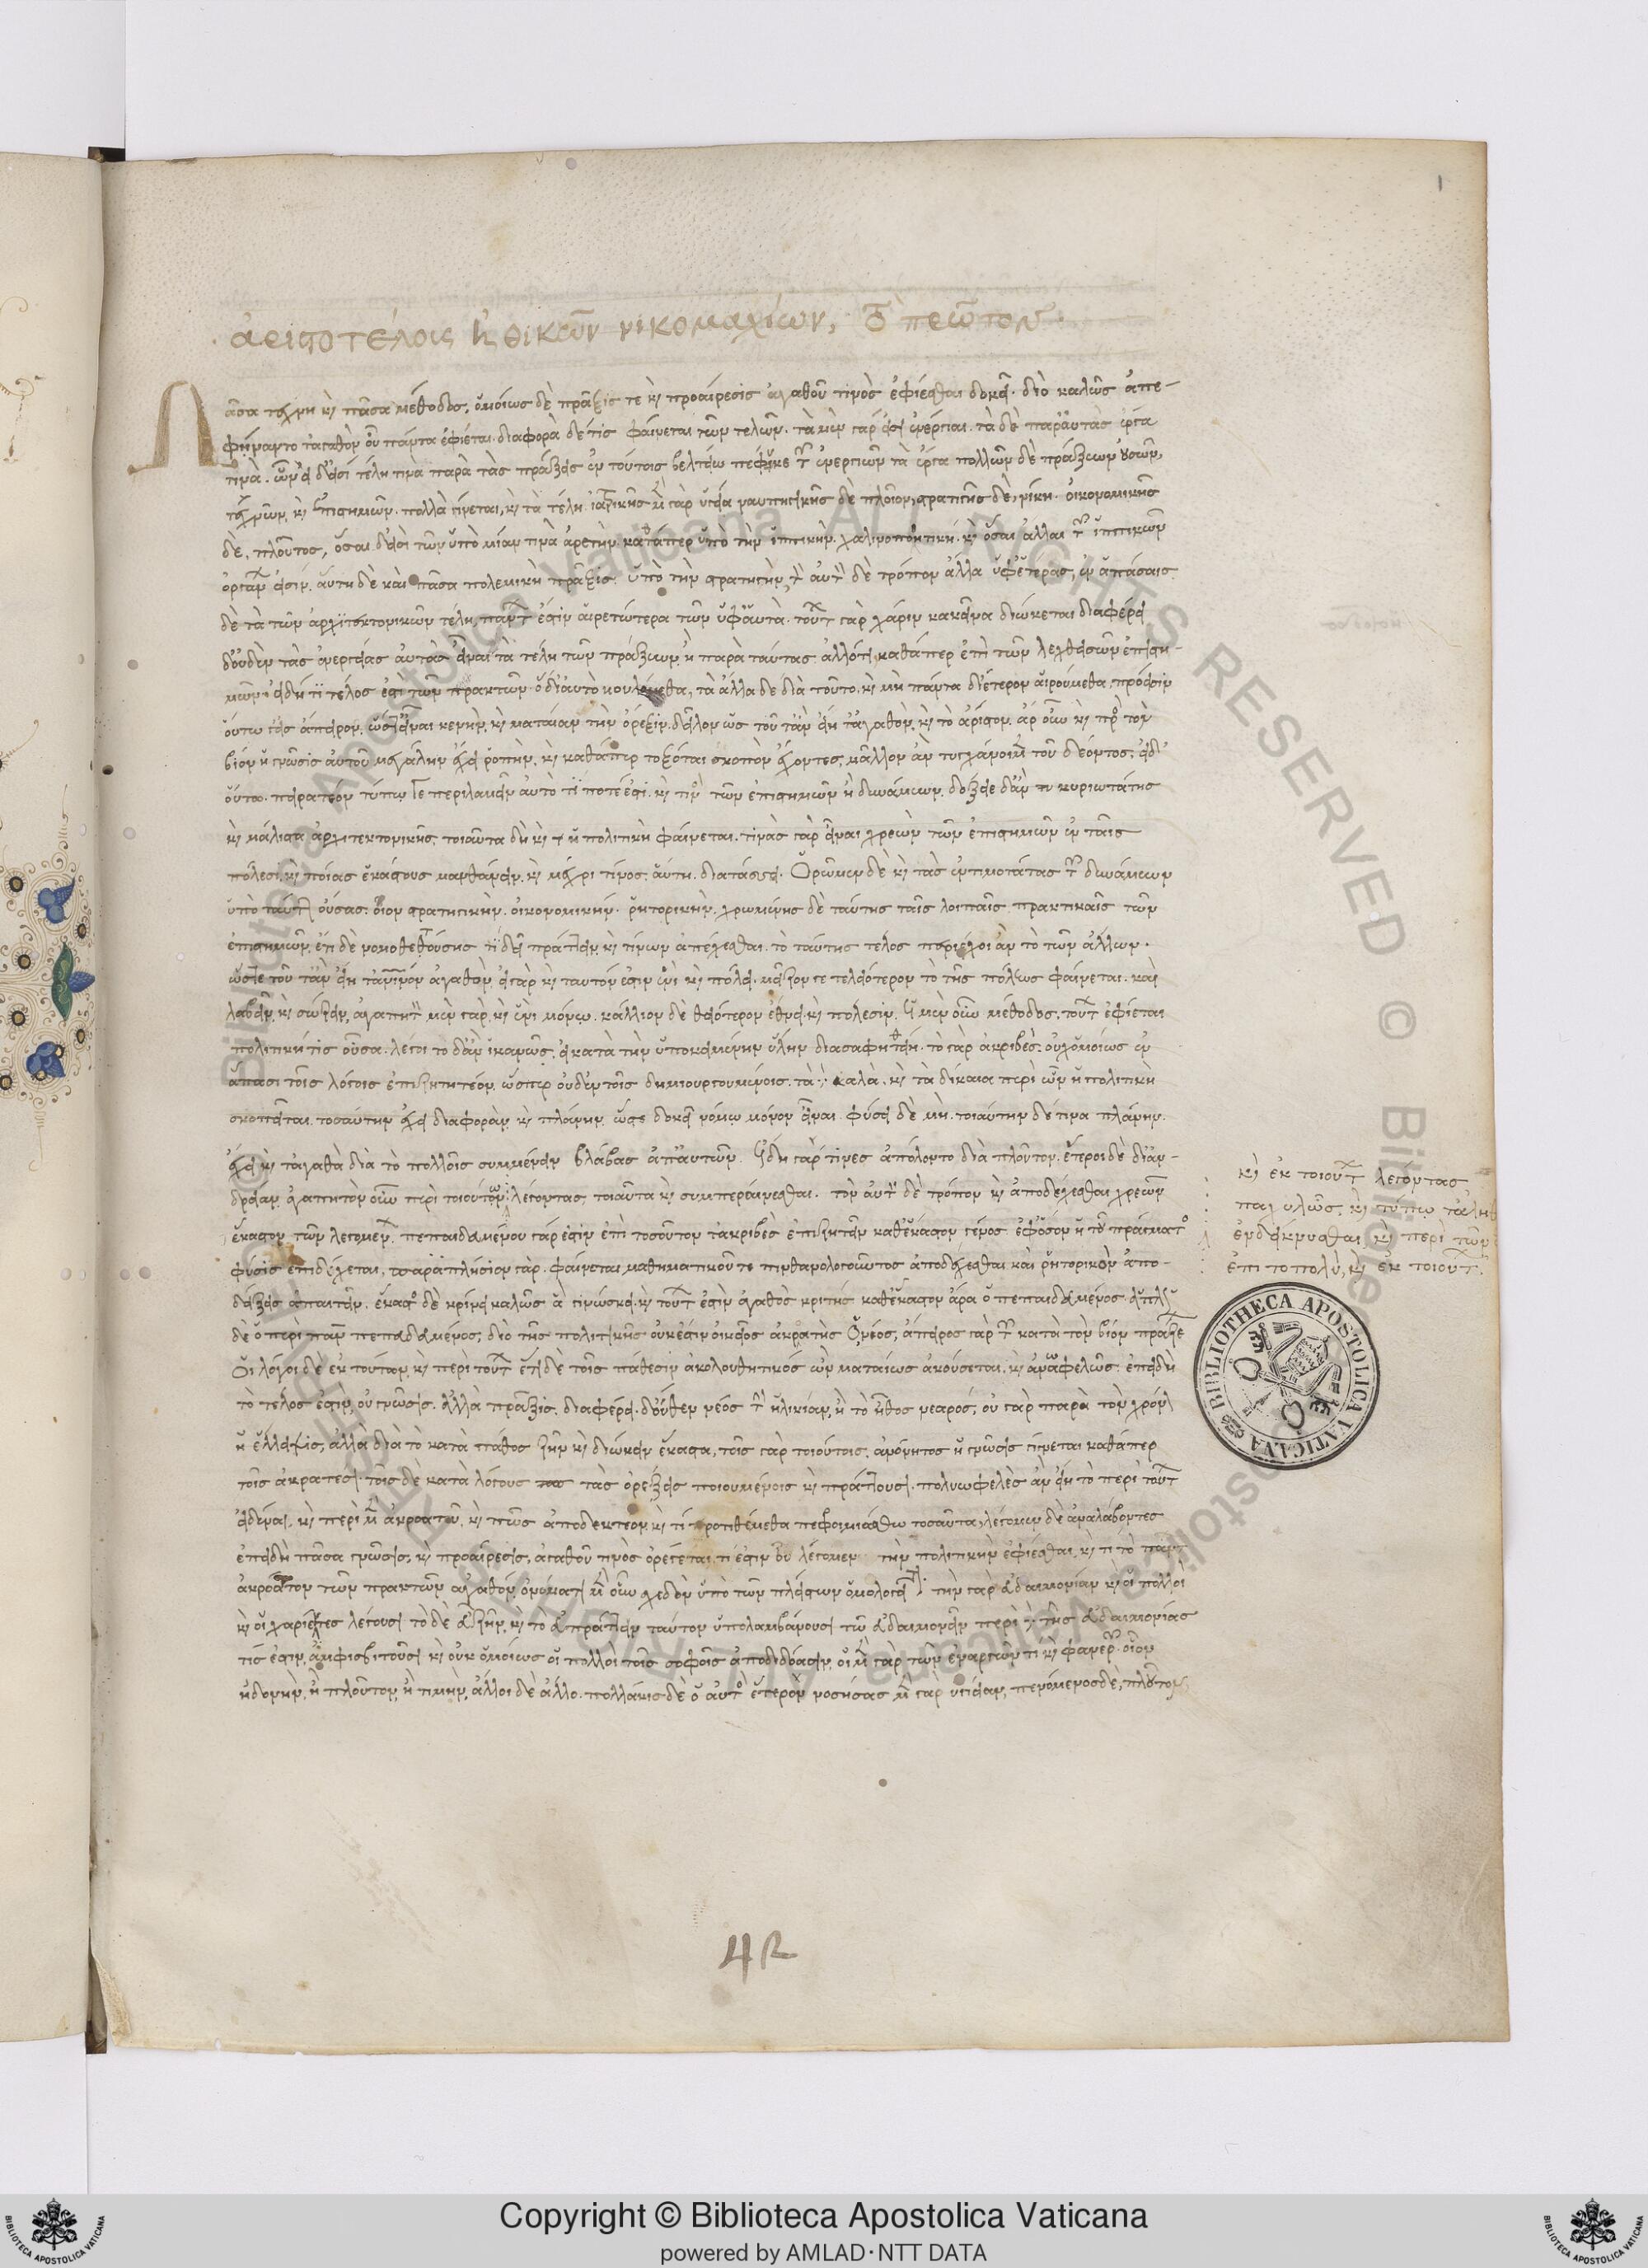 1
ἀριστοτέλους ἠθικῶν νικομαχίων, τὸ πρῶτον.
Πᾶσα τέχνη καὶ πᾶσα μέθοδος, ὁμοίως δὲ πρᾶξις τε καὶ προαίρεσις ἀγαθοῦ τινὸς ἐφίεσθαι δοκεῖ. διὸ καλῶς ἀπε-
φήναντο τἀγαθὸν οὗ πάντα ἐφίεται. διαφορὰ δέ τις φαίνεται τῶν τελῶν. τὰ μὲν γάρ εἰσι ἐνέργειαι. τὰ δὲ παρ' αὐτὰς ἔργα
τινὰ. ὧν δ' εἰσὶ τέλη τινα παρὰ τὰς πράξεις ἐν τούτοις βελτίω πέφυκε τῶν ἐνεργειῶν τὰ ἔργα πολλῶν δὲ πράξεων οὐσῶν,
τεχνῶν, καὶ ἐπιστημῶν. πολλὰ γίνεται, καὶ τὰ τέλη. ἰατρικῆς μὲν γὰρ ὑγεία ναυπηγικῆς δὲ πλοῖον, στρατηγικῆς δὲ, νίκη. οἰκονομικῆς
δὲ, πλοῦτος, ὅσαι δ' εἰσὶ τῶν ὑπὸ μίαν τινὰ ἀρετὴν. καθάπερ ὑπὸ τὴν ἱππικὴν. χαλινοποιητική. καὶ ὅσαι ἄλλαι τῶν ἱππικῶν
ὀργάνων εἰσίν. αὕτη δὲ καὶ πᾶσα πολεμικὴ πρᾶξις. ὑπὸ τὴν στρατηγικὴν, τὸν αὐτὸν δὲ τρόπον ἄλλα ὑφ' ἑτέρας, ἐν ἁπάσαις
δὲ τὰ τῶν ἀρχιτεκτονικῶν τέλη, πάντων ἐστὶν αἱρετώτερα τῶν ὑφ' αὑτὰ. τούτων γὰρ χάριν κἀκεῖνα διώκεται διαφέρει
δ' οὐδὲν τὰς ἐνεργείας αὐτὰς εἶναι τὰ τέλη τῶν πράξεων, ἢ παρὰ ταύτας ἄλλό τι, καθάπερ ἐπὶ τῶν λεχθεισῶν ἐπιστη-
μῶν. εἰ δή τι τέλος ἐστὶ τῶν πρακτῶν ὃ δι' αὑτὸ βουλόμεθα, τὰ ἄλλα δε διὰ τοῦτο. καὶ μὴ πάντα δι' ἕτερον αἱρούμεθα, πρόεισιν
οὕτω γ' εἰς ἄπειρον. ὥστ' εἶναι κενὴν, καὶ ματαίαν τὴν ὄρεξιν. δῆλον ὡς τοῦτ' ἂν εἴη τἀγαθὸν, καὶ τὸ ἄριστον. ἆρ' οὖν καὶ πρὸς τὸν
βίον ἡ γνῶσις αὐτοῦ μεγάλην ἔχει ῥοπὴν, καὶ καθάπερ τοξόται σκοπὸν ἔχοντες, μᾶλλον ἂν τυγχάνοιμεν τοῦ δέοντος. εἰ δ'
οὕτω. πειρατέον τύπῳ γε περιλαβεῖν αὐτὸ τί ποτέ ἐστι. καὶ τίνος τῶν ἐπιστημῶν ἢ δυνάμεων. δόξειε δ' ἂν τῆς κυριωτάτης
καὶ μάλιστα ἀρχιτεκτονικῆς. τοιαῦτα δὴ καὶ ἡ πολιτικὴ φαίνεται. τίνας γὰρ εἶναι χρεὼν τῶν ἐπιστημῶν ἐν ταῖς
πόλεσι, καὶ ποίας ἑκάστους μανθάνειν. καὶ μέχρι τίνος. αὕτη διατάσσει. Ὁρῶμεν δὲ καὶ τὰς ἐντιμοτάτας τῶν δυνάμεων
ὑπὸ ταύτην οὔσας. οἷον στρατηγικὴν. οἰκονομικὴν. ῥητορικὴν. χρωμένης δὲ ταύτης ταῖς λοιπαῖς πρακτικαῖς τῶν
ἐπιστημῶν. ἔτι δὲ νομοθετούσης τί δεῖ πράττειν, καὶ τίνων ἀπέχεσθαι. τὸ ταύτης τέλος περιέχοι ἂν τὸ τῶν ἄλλων.
ὥστε τοῦτ' ἂν εἴη τἀνθρώπινον ἀγαθὸν, εἰ γὰρ καὶ ταυτόν ἐστιν ἑνὶ καὶ πόλει. μεῖζον τε τελεότερον τὸ τῆς πόλεως φαίνεται. καὶ
λαβεῖν, καὶ σώζειν, ἀγαπητὸν μὲν γὰρ, καὶ ἑνὶ μόνῳ. κάλλιον δὲ θειότερον ἔθνει, καὶ πόλεσιν. Ἡ μὲν οὖν μέθοδος, τούτων ἐφίεται
πολιτική τις οὖσα. λέγοιτο δ' ἂν ἱκανῶς, εἰ κατὰ τὴν ὑποκειμένην ὕλην διασαφηθείη. τὸ γὰρ ἀκριβὲς. οὐχ ὁμοίως ἐν
ἅπασι τοῖς λόγοις ἐπιζητητέον, ὥσπερ οὐδ' ἐν τοῖς δημιουργουμένοις. τὰ δὲ καλὰ. καὶ τὰ δίκαια περὶ ὧν ἡ πολιτικὴ
σκοπεῖται. τοσαύτην ἔχει διαφορὰν, καὶ πλάνην, ὥστε δοκεῖ νόμῳ μόνον εἶναι. φύσει δὲ μὴ. τοιαύτην δέ τινα πλάνην.
ἔχει καὶ τἀγαθὰ διὰ τὸ πολλοῖς συμβαίνειν βλάβας ἀπ' αὐτῶν. Ἤδη γάρ τινες ἀπόλοντο διὰ πλοῦτον. ἕτεροι δὲ δι' ἀν-
δρείαν, ἀγαπητὸν οὖν περὶ τοιούτων λέγοντας, τοιαῦτα καὶ συμπεραίνεσθαι. τὸν αὐτὸν δὲ τρόπον καὶ ἀποδέχεσθαι χρεὼν
ἕκαστον τῶν λεγομένων. πεπαιδευμένου γάρ ἐστιν ἐπὶ τοσοῦτον τἀκριβὲς ἐπιζητεῖν καθ' ἕκαστον γένος ἐφ' ὅσον ἡ τοῦ πράγματος
φύσις ἐπιδέχεται, παραπλήσιον γὰρ. φαίνεται μαθηματικοῦ τε πιθανολογοῦντος ἀποδέχεσθαι καὶ ῥητορικὸν ἀπο-
δείξεις ἀπαιτεῖν. ἕκαστος δὲ κρίνει καλῶς ἃ γινώσκει, καὶ τούτων ἐστὶν ἀγαθὸς κριτής. καθ' ἕκαστον ἄρα ὁ πεπαιδευμένος. ἁπλῶς
δὲ ὁ περὶ πᾶν πεπαιδευμένος, διὸ τῆς πολιτικῆς οὐκ ἔστιν οἰκεῖος ἀκροατὴς ὁ νέος, ἄπειρος γὰρ τῶν κατὰ τὸν βίον πράξεων
Οἱ λόγοι δὲ ἐκ τούτων, καὶ περὶ τούτων ἔτι δὲ τοῖς πάθεσιν ἀκολουθητικός ὢν ματαίως ἀκούσεται. καὶ ἀνωφελῶς. ἐπειδὴ
τὸ τέλος ἐστὶν, οὐ γνῶσις. ἀλλὰ πρᾶξις. διαφέρει δ' οὐθὲν νέος τὴν ἡλικίαν, ἢ τὸ ἦθος νεαρός, οὐ γὰρ παρὰ τὸν χρόνον
ἡ ἔλλειψις, ἀλλὰ διὰ τὸ κατὰ πάθος ζῆν καὶ διώκειν ἕκαστα, τοῖς γὰρ τοιούτοις. ἀνόνητος ἡ γνῶσις γίνεται καθάπερ
τοῖς ἀκρατεσι. τοῖς δὲ κατὰ λόγους τὰς ὀρέξεις ποιουμένοις καὶ πράττουσι. πολυωφελὲς ἂν εἴη τὸ περὶ τούτων
εἰδέναι. καὶ περὶ μὲν ἀκροατοῦ, καὶ πῶς ἀποδεκτέον, καὶ τί προτιθέμεθα πεφροιμιάσθω τοσαῦτα, λέγωμεν δὲ ἀναλαβόντες
ἐπειδὴ πᾶσα γνῶσις, καὶ προαίρεσις, ἀγαθοῦ τινὸς ὀρέγεται, τί ἐστιν οὗ λέγομεν τὴν πολιτικὴν ἐφίεσθαι, καὶ τί τὸ πάντων
ἀκρότατον τῶν πρακτῶν ἀγαθόν, ὀνόματι μὲν οὖν σχεδὸν ὑπὸ τῶν πλείστων ὁμολογεῖται. τὴν γὰρ εὐδαιμονίαν καὶ οἱ πολλοὶ
καὶ οἱ χαρίεντες λέγουσι τὸ δὲ εὖ ζῆν, καὶ τὸ εὖ πράττειν ταυτὸν ὑπολαμβάνουσι τῷ εὐδαιμονεῖν περὶ δὲ τῆς εὐδαιμονίας
τίς ἐστιν, ἀμφισβητοῦσι καὶ οὐκ ὁμοίως οἱ πολλοὶ τοῖς σοφοῖς ἀποδιδόασιν, οἱ μὲν γὰρ τῶν ἐναργῶν τι καὶ φανερῶν. οἷον
ἡδονὴν, ἢ πλοῦτον, ἢ τιμὴν, ἄλλοι δὲ ἄλλο. πολλάκις δὲ ὁ αὐτὸς ἕτερον νοσήσας μὲν γὰρ ὑγείαν, πενόμενος δὲ, πλοῦτον,
καὶ ἐκ τοιούτων λέγοντας
παχυλῶς, καὶ τύπῳ τἀληθ
ἐνδείκνυσθαι, καὶ περὶ τῶν
ἐπι τοπολὺ, καὶ ἐκ τοιούτων
BIBLIOTHECA APOSTOLICA VATICANA
Bibliotheca Apostolica Vaticana ALL RIGHTS RESERVED ©
Copyright © Biblioteca Apostolica Vaticana
powered by AMLAD·NTT DATA